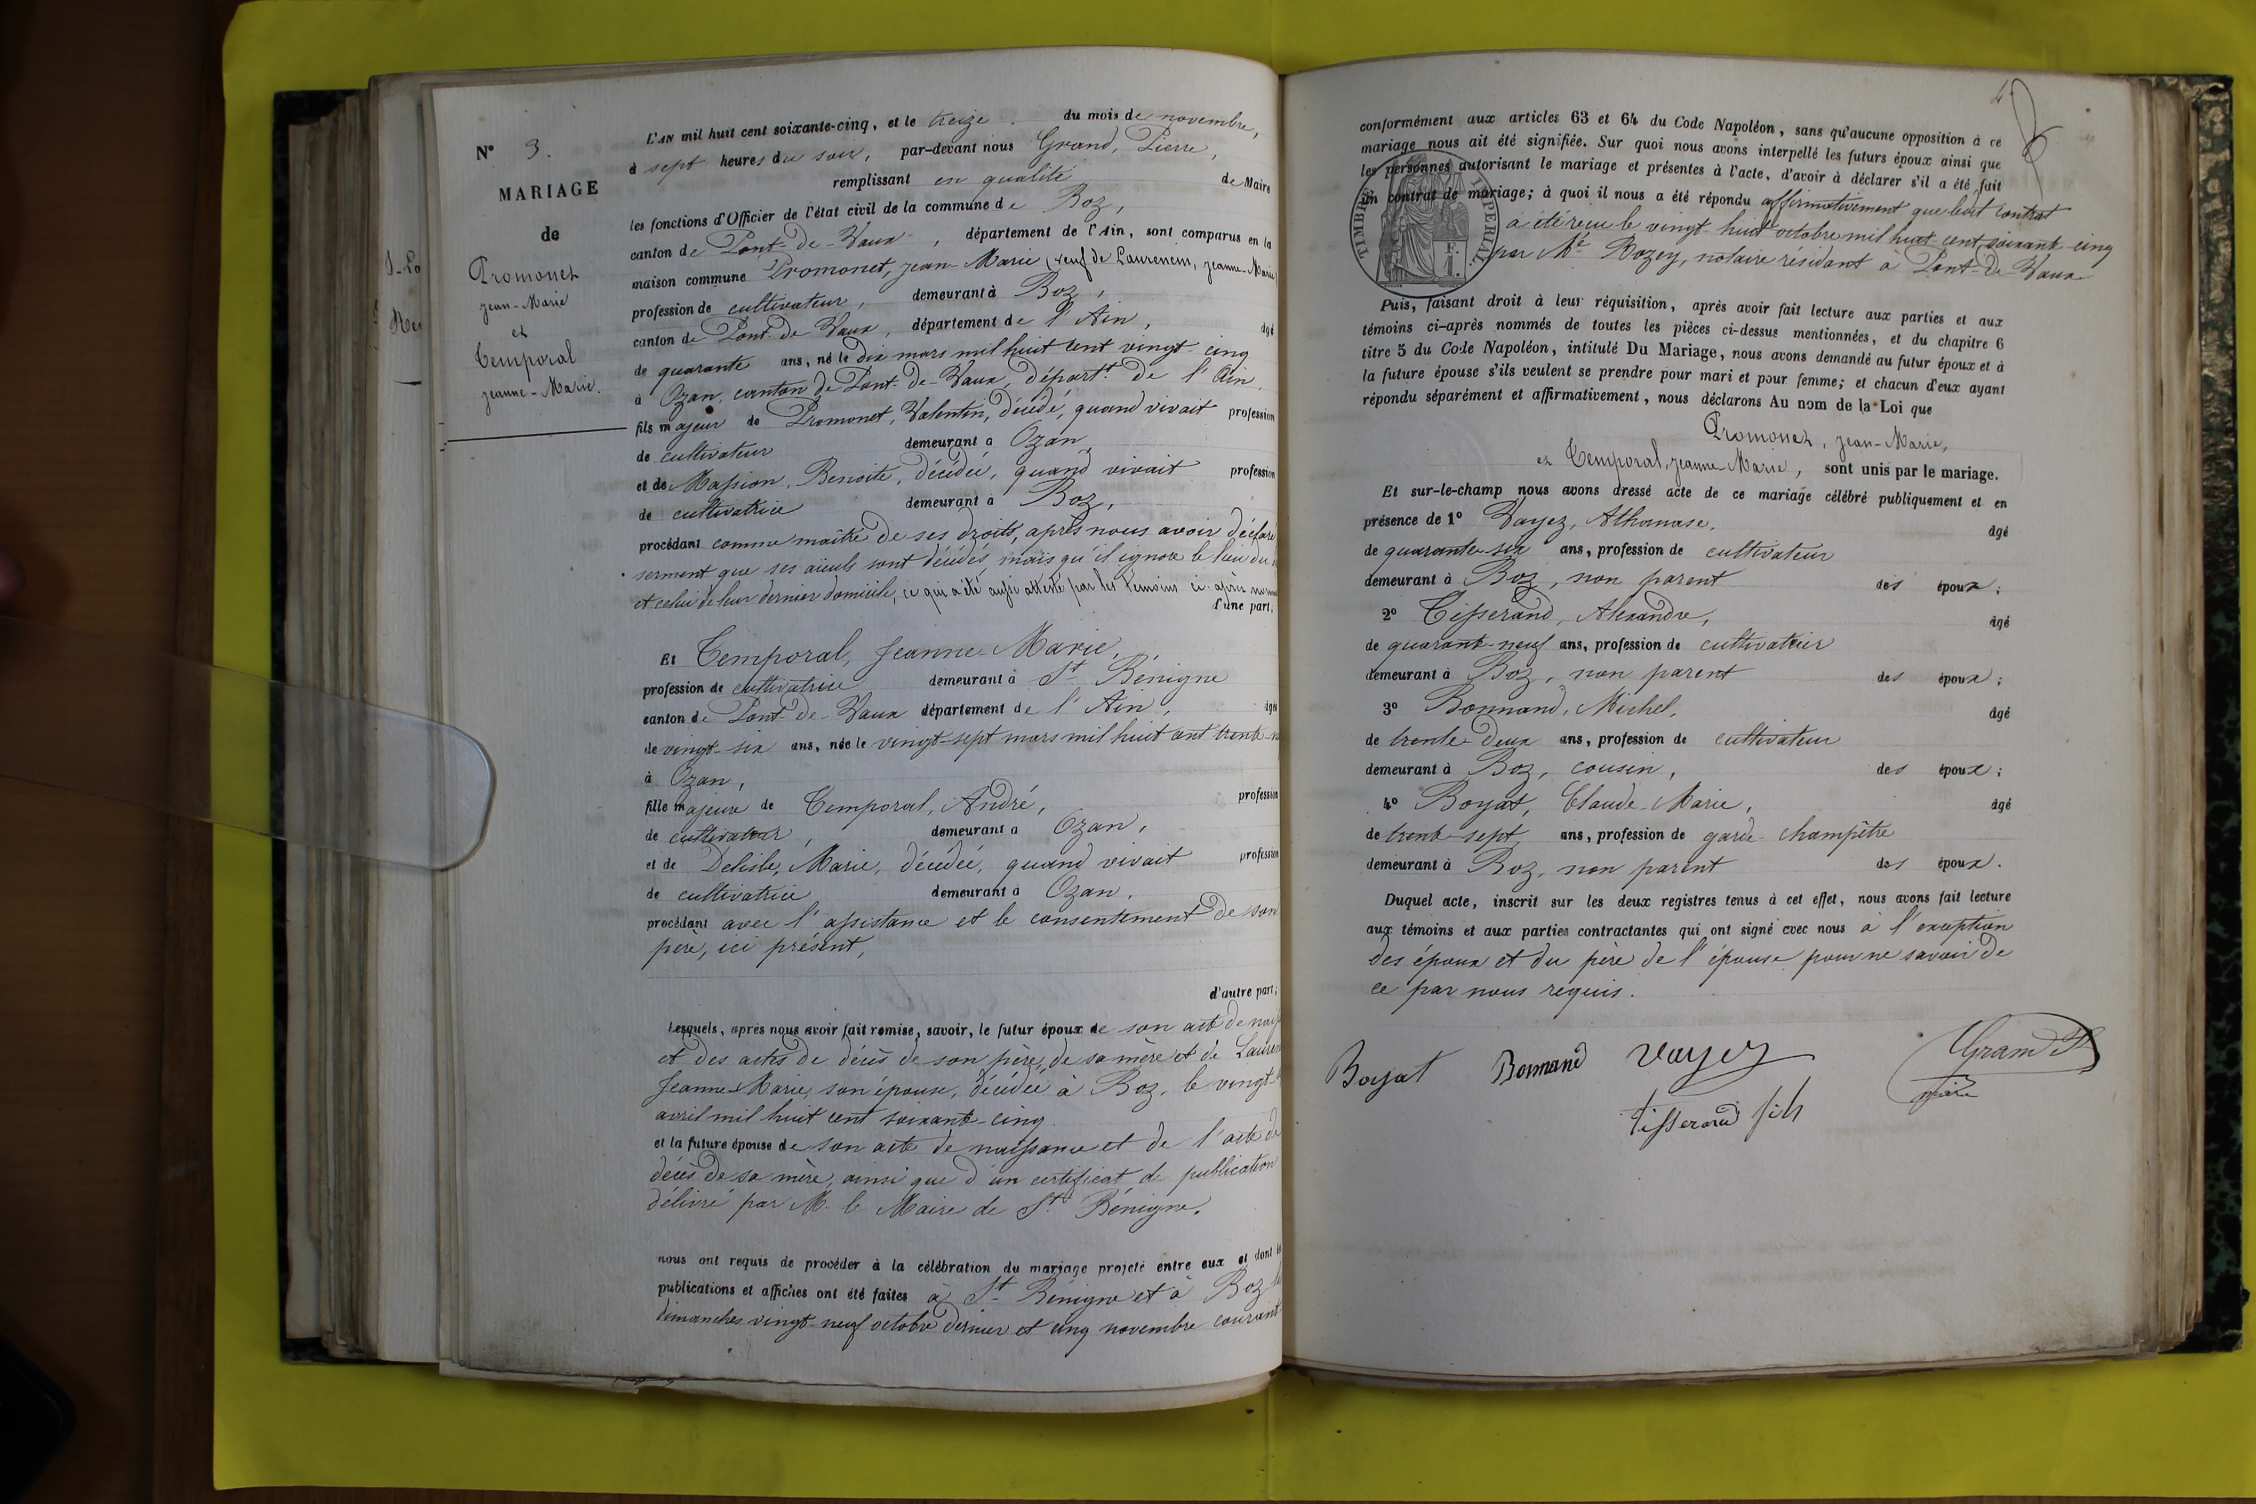 N° 3.
MARIAGE
de
Promonet
jean-Marie
et
Temporal
jeanne-Marie.
L'AN mil huit cent soixante-cinq, et le treize du mois de novembre,
à sept heures du soir, par-devant nous Grand, Pierre,
remplissant en qualité de Maire
les fonctions d'Officier de l'état civil de la commune de Boz,
canton de Pont-de-Vaux, département de l'Ain, sont comparus en la
maison commune Promonet, jean-Marie (veuf de Laurencin, jeanne-Marie)
profession de cultivateur, demeurant à Boz,
canton de Pont-de-Vaux, département de l'Ain, âgé
de quarante ans, né le dix mars mil huit cent vingt-cinq
à Ozan, canton de Pont-de-Vaux, départt de l'Ain,
fils majeur de Promonet, Valentin, décédé, quand vivait profession
de cultivateur demeurant à Ozan,
et de Massion, Benoite, décédée, quand vivait profession
de cultivatrice demeurant à Boz,
procédant comme maître de ses droits, après nous avoir déclaré
serment que ses aïeuls sont décédés, mais qu'il ignore le lieu du
et celui de leur dernier domicile, ce qui a été aussi attesté par les témoins ci-après
d'une part,
Et Temporal, Jeanne-Marie,
profession de cultivatrice demeurant à St Bénigne
canton de Pont-de-Vaux département de l'Ain, âgée
de vingt-six ans, née le vingt-sept mars mil huit cent trente-
à Ozan,
fille majeure de Temporal, André, profession
de cultivateur, demeurant à Ozan,
et de Marie, décédée, quand vivait profession
de cultivatrice demeurant à Ozan,
procédant avec l'assistance et le consentement de son
père, ici présent,
d'autre part;
Lesquels, après nous avoir fait remise, savoir, le futur époux de son acte de
et des actes de décès de son père, de sa mère et de
Jeanne-Marie, son épouse, décédée à Boz, le vingt
avril mil huit cent soixante-cinq.
et la future épouse de son acte de naissance et de l'acte de
décès de sa mère, ainsi que d'un certificat de publication
délivré par M. le Maire de St Bénigne.
nous ont requis de procéder à la célébration du mariage projeté entre eux et dont les
publications et affiches ont été faites à St Bénigne et à Boz les
dimanches vingt-neuf octobre dernier et cinq novembre courant
4
conformément aux articles 63 et 64 du Code Napoléon, sans qu'aucune opposition à ce
mariage nous ait été signifiée. Sur quoi nous avons interpellé les futurs époux ainsi que
les personnes autorisant le mariage et présentes à l'acte, d'avoir à déclarer s'il a été fait
un contrat de mariage; à quoi il nous a été répondu affirmativement que leur contrat
a été reçu le vingt-huit octobre mil huit cent soixante-cinq
par Me Rozey, notaire résidant à Pont-de-Vaux
TIMBRE IMPERIAL
Puis, faisant droit à leur réquisition, après avoir fait lecture aux parties et aux
témoins ci-après nommés de toutes les pièces ci-dessus mentionnées, et du chapitre 6
titre 5 du Code Napoléon, intitulé Du Mariage, nous avons demandé au futur époux et à
la future épouse s'ils veulent se prendre pour mari et pour femme; et chacun d'eux ayant
répondu séparément et affirmativement, nous déclarons Au nom de la Loi que
Promonet, jean-Marie,
et Temporal, jeanne-Marie, sont unis par le mariage.
Et sur-le-champ nous avons dressé acte de ce mariage célébré publiquement et en
présence de 1° Vayez, Athanase, âgé
de quarante-six ans, profession de cultivateur
demeurant à Boz, non parent des époux;
2° Tisserand, Alexandre, âgé
de quarante-neuf ans, profession de cultivateur
demeurant à Boz, non parent des époux;
3° Bonnand, Michel, âgé
de trente-deux ans, profession de cultivateur
demeurant à Boz, cousin, des époux;
4° Boyat, Claude-Marie, âgé
de trente-sept ans, profession de garde-champêtre
demeurant à Boz, non parent des époux.
Duquel acte, inscrit sur les deux registres tenus à cet effet, nous avons fait lecture
aux témoins et aux parties contractantes qui ont signé avec nous à l'exception
des époux et du père de l'épouse pour ne savoir de
ce par nous requis.
Boyat Bonnand Vayez Grand P
maire
Tisserand fils